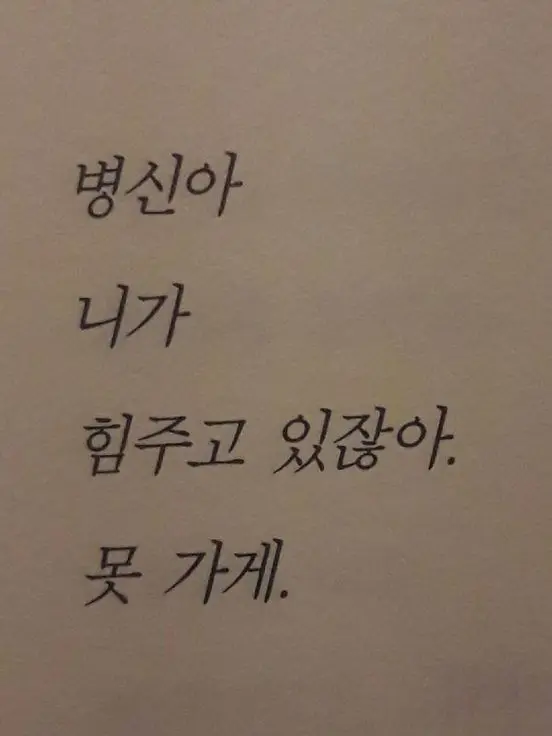 병신아
니가
힘주고 있잖아.
못 가게.